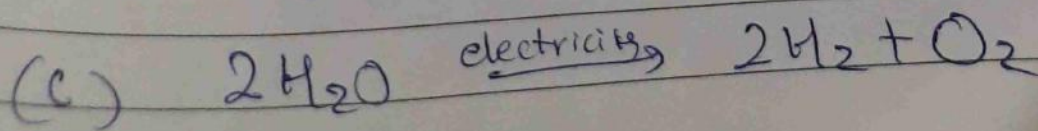 (C) 2H₂O electricity→ 2H₂ + O₂